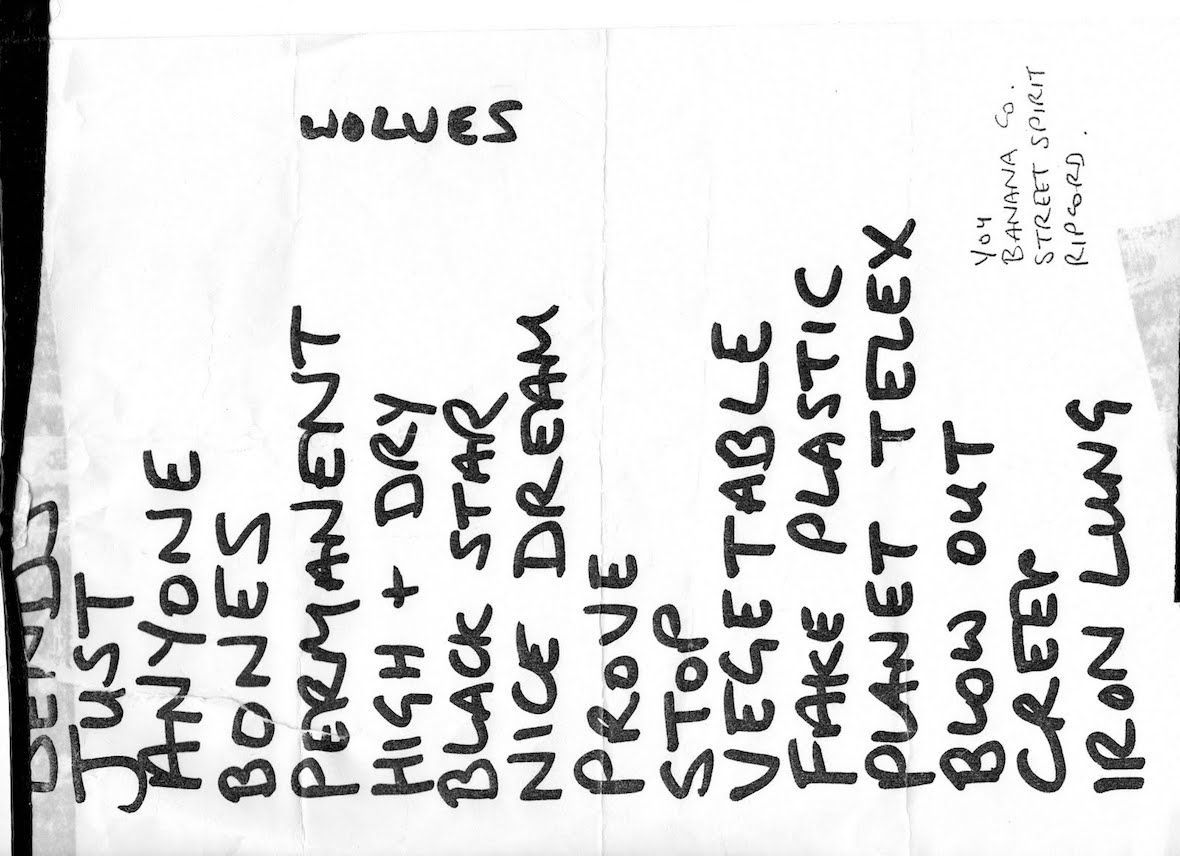 BENDS
JUST
ANYONE
BONES
PERMANENT
HIGH + DRY
BLACK STAR
NICE DREAM
PROVE
STOP
VEGETABLE
FAKE PLASTIC
PLANET TELEX
BLOW OUT
CREEP
IRON LUNG
WOLVES
YOU
BANANA CO.
STREET SPIRIT
RIPCORD.